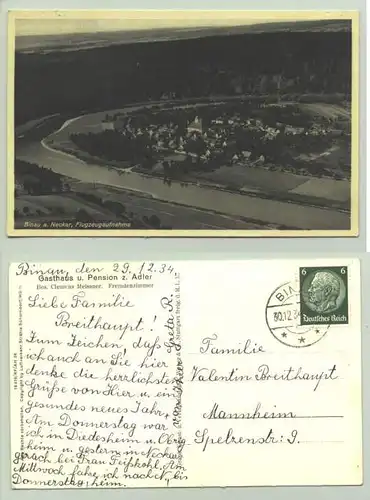 Binau a. Neckar, Flugzeugaufnahme
Binau, den 29.12.34
Gasthaus u. Pension z. Adler
Bes. Clemens Meissner. Fremdenzimmer
Liebe Familie
Breithaupt!
Zum Zeichen, daß
ich auch an Sie hier
denke die herzlichsten
Grüße von Hier u. ein
gesundes neues Jahr.
Am Donnerstag war
ich in Diedesheim u. Obrig
heim u. gestern in Neckar
gerach bei Frau
Am
Mittwoch fahre ich nach
bis
Donnerstag, heim.
Greta R.
6 6
Deutsches Reich
BIN
30.12.34
Familie
Valentin Breithaupt
Mannheim
Spelzenstr. 9.